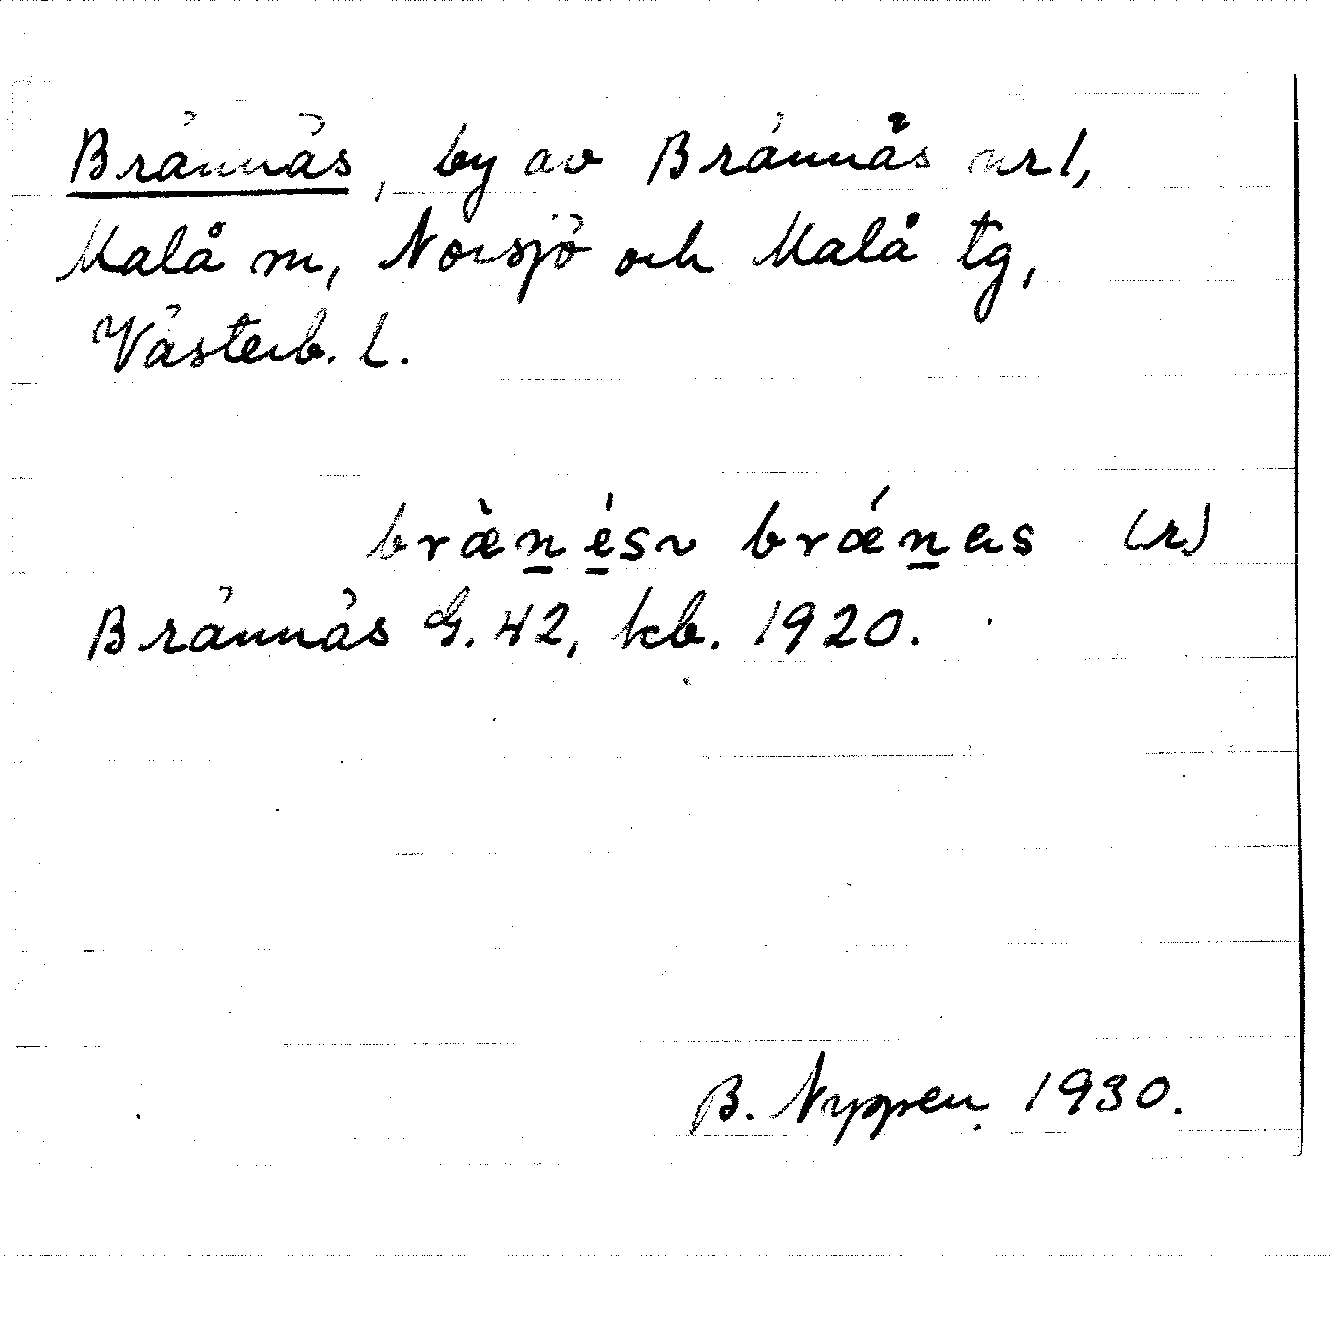 Brännäs, by av Brännås nr 1,
Malå sn, Norsjö och Malå tg,
Västerb. l.
bræ̀n̲é̲sv brǽn̲as (r)
Brännäs G. 42, kb. 1920.
B. Nyppen 1930.